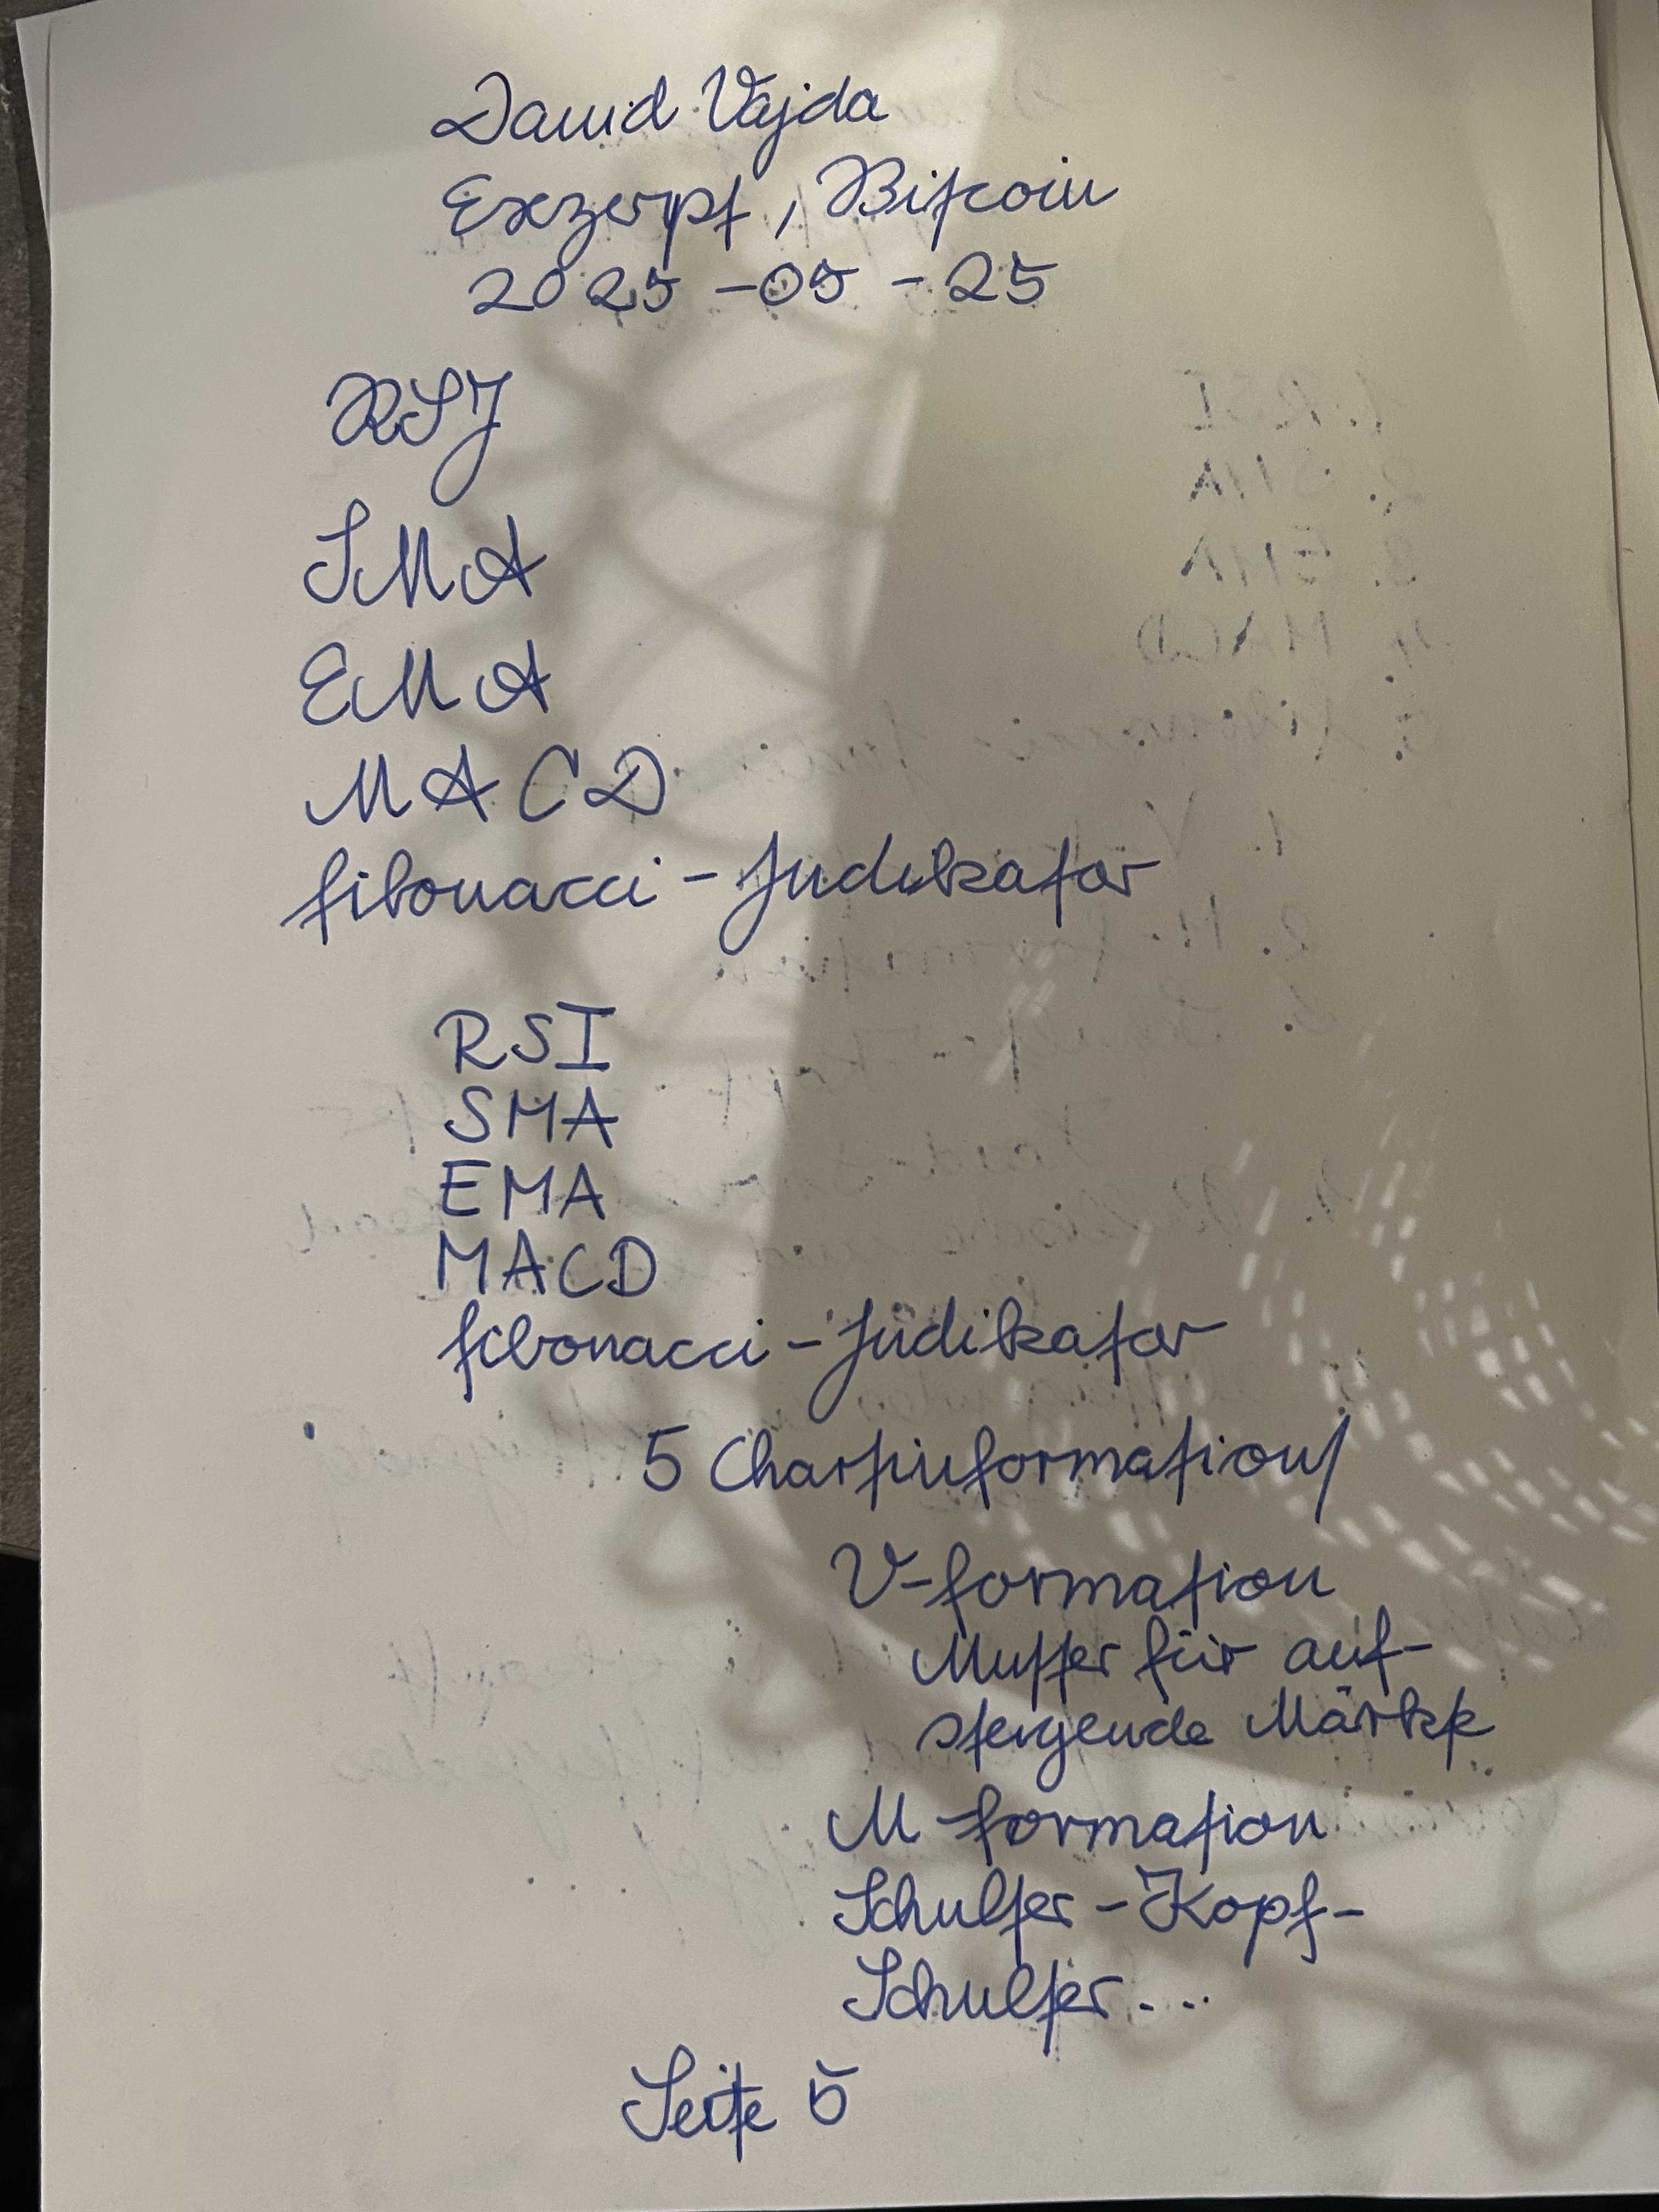 David Vajda
Exzerpt, Bitcoin
2025-05-25
RSI
SMA
EMA
MACD
fibonacci-Indikator
RSI
SMA
EMA
MACD
fibonacci-Indikator
5 Chartinformation/
V-formation
Muster für auf-
steigende Märkte
M-formation
Schulter-Kopf-
Schulter...
Seite 5
1. RSI
2. SMA
3. EMA
4. MACD